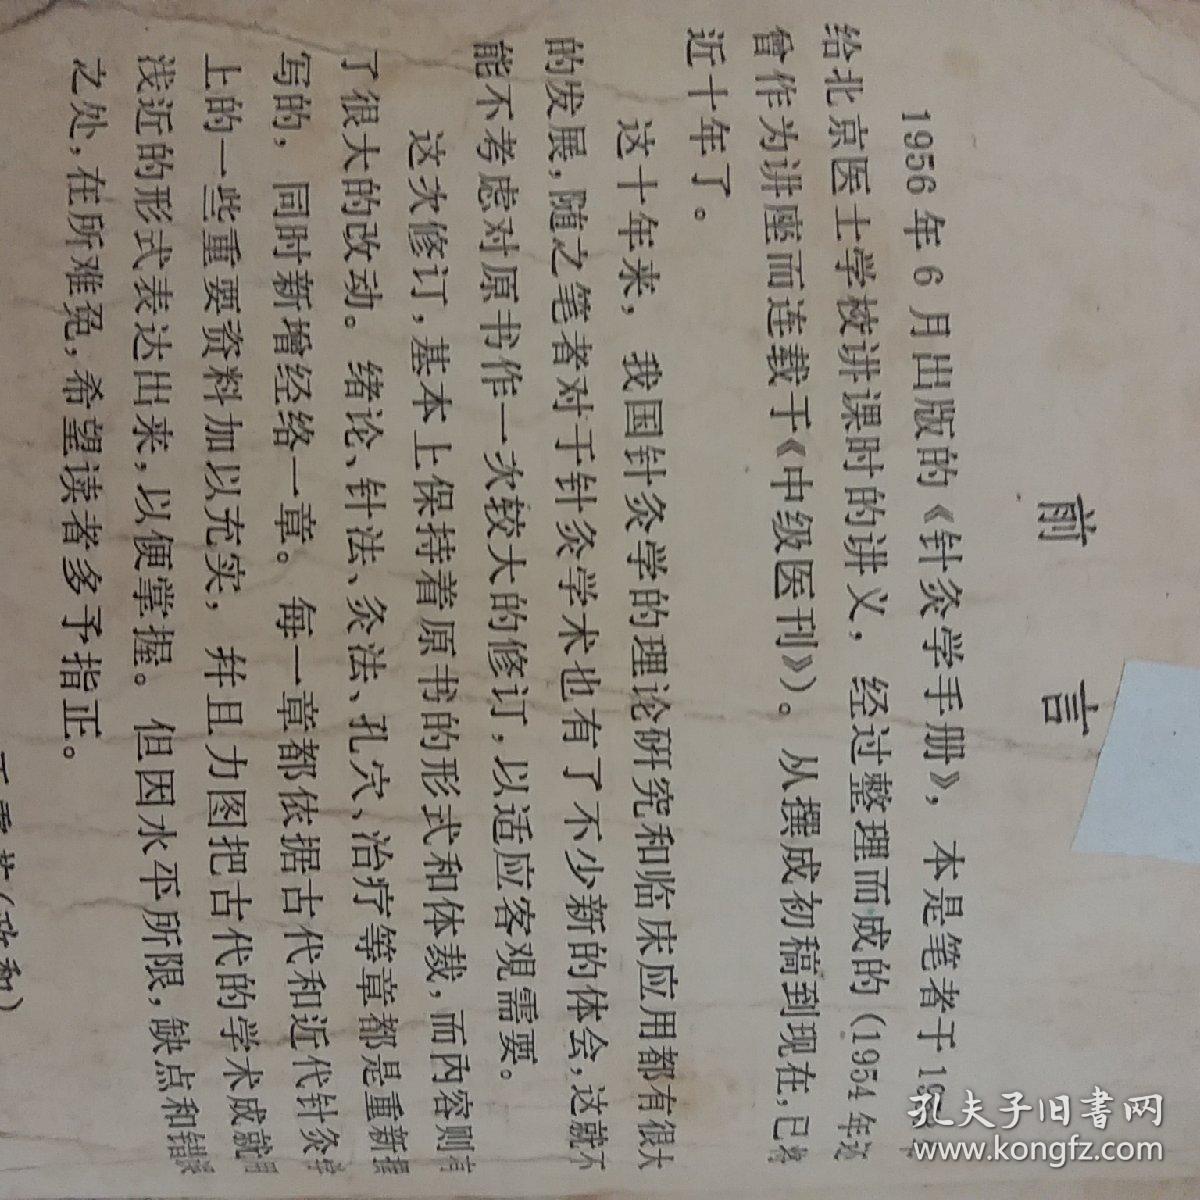 前言
1956年6月出版的《针灸学手册》，本是笔者于19
给北京医士学校讲课时的讲义，经过整理而成的（1954年
曾作为讲座而连载于《中级医刊》）。从撰成初稿到现在，已将
近十年了。
这十年来，我国针灸学的理论研究和临床应用都有很大
的发展，随之笔者对于针灸学术也有了不少新的体会，这就不
能不考虑对原书作一次较大的修订，以适应客观需要。
这次修订，基本上保持着原书的形式和体裁，而内容则有
了很大的改动。绪论、针法、灸法、孔穴、治疗等章都是重新撰
写的，同时新增经络一章。每一章都依据古代和近代针灸学
上的一些重要资料加以充实，并且力图把古代的学术成就用
浅近的形式表达出来，以便掌握。但因水平所限，缺点和错误
之处，在所难免，希望读者多予指正。
王雪苔（政和）
孔夫子旧书网
www.kongfz.com